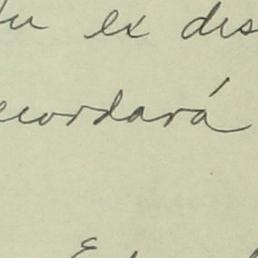 Tu ex dis
ecordará